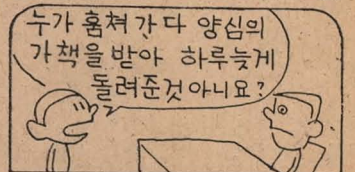 누가 훔쳐 간다 양심의
가책을 받아 하루늦게
돌려준것 아니요?